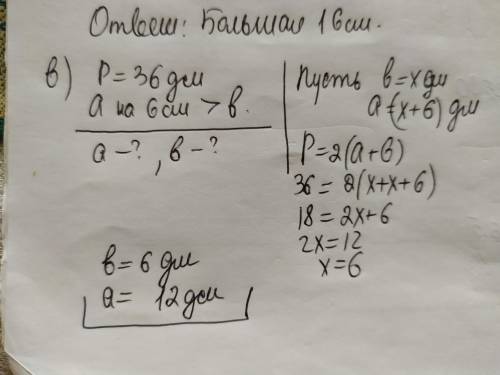 Ответ: Большая 16 см.
в) P = 36 дм
a на 6 см > в.
a - ? , в - ?
в = 6 дм
a = 12 дм
Пусть в = x дм
a = (x+6) дм
P = 2(a+в)
36 = 2(x+x+6)
18 = 2x+6
2x = 12
x = 6